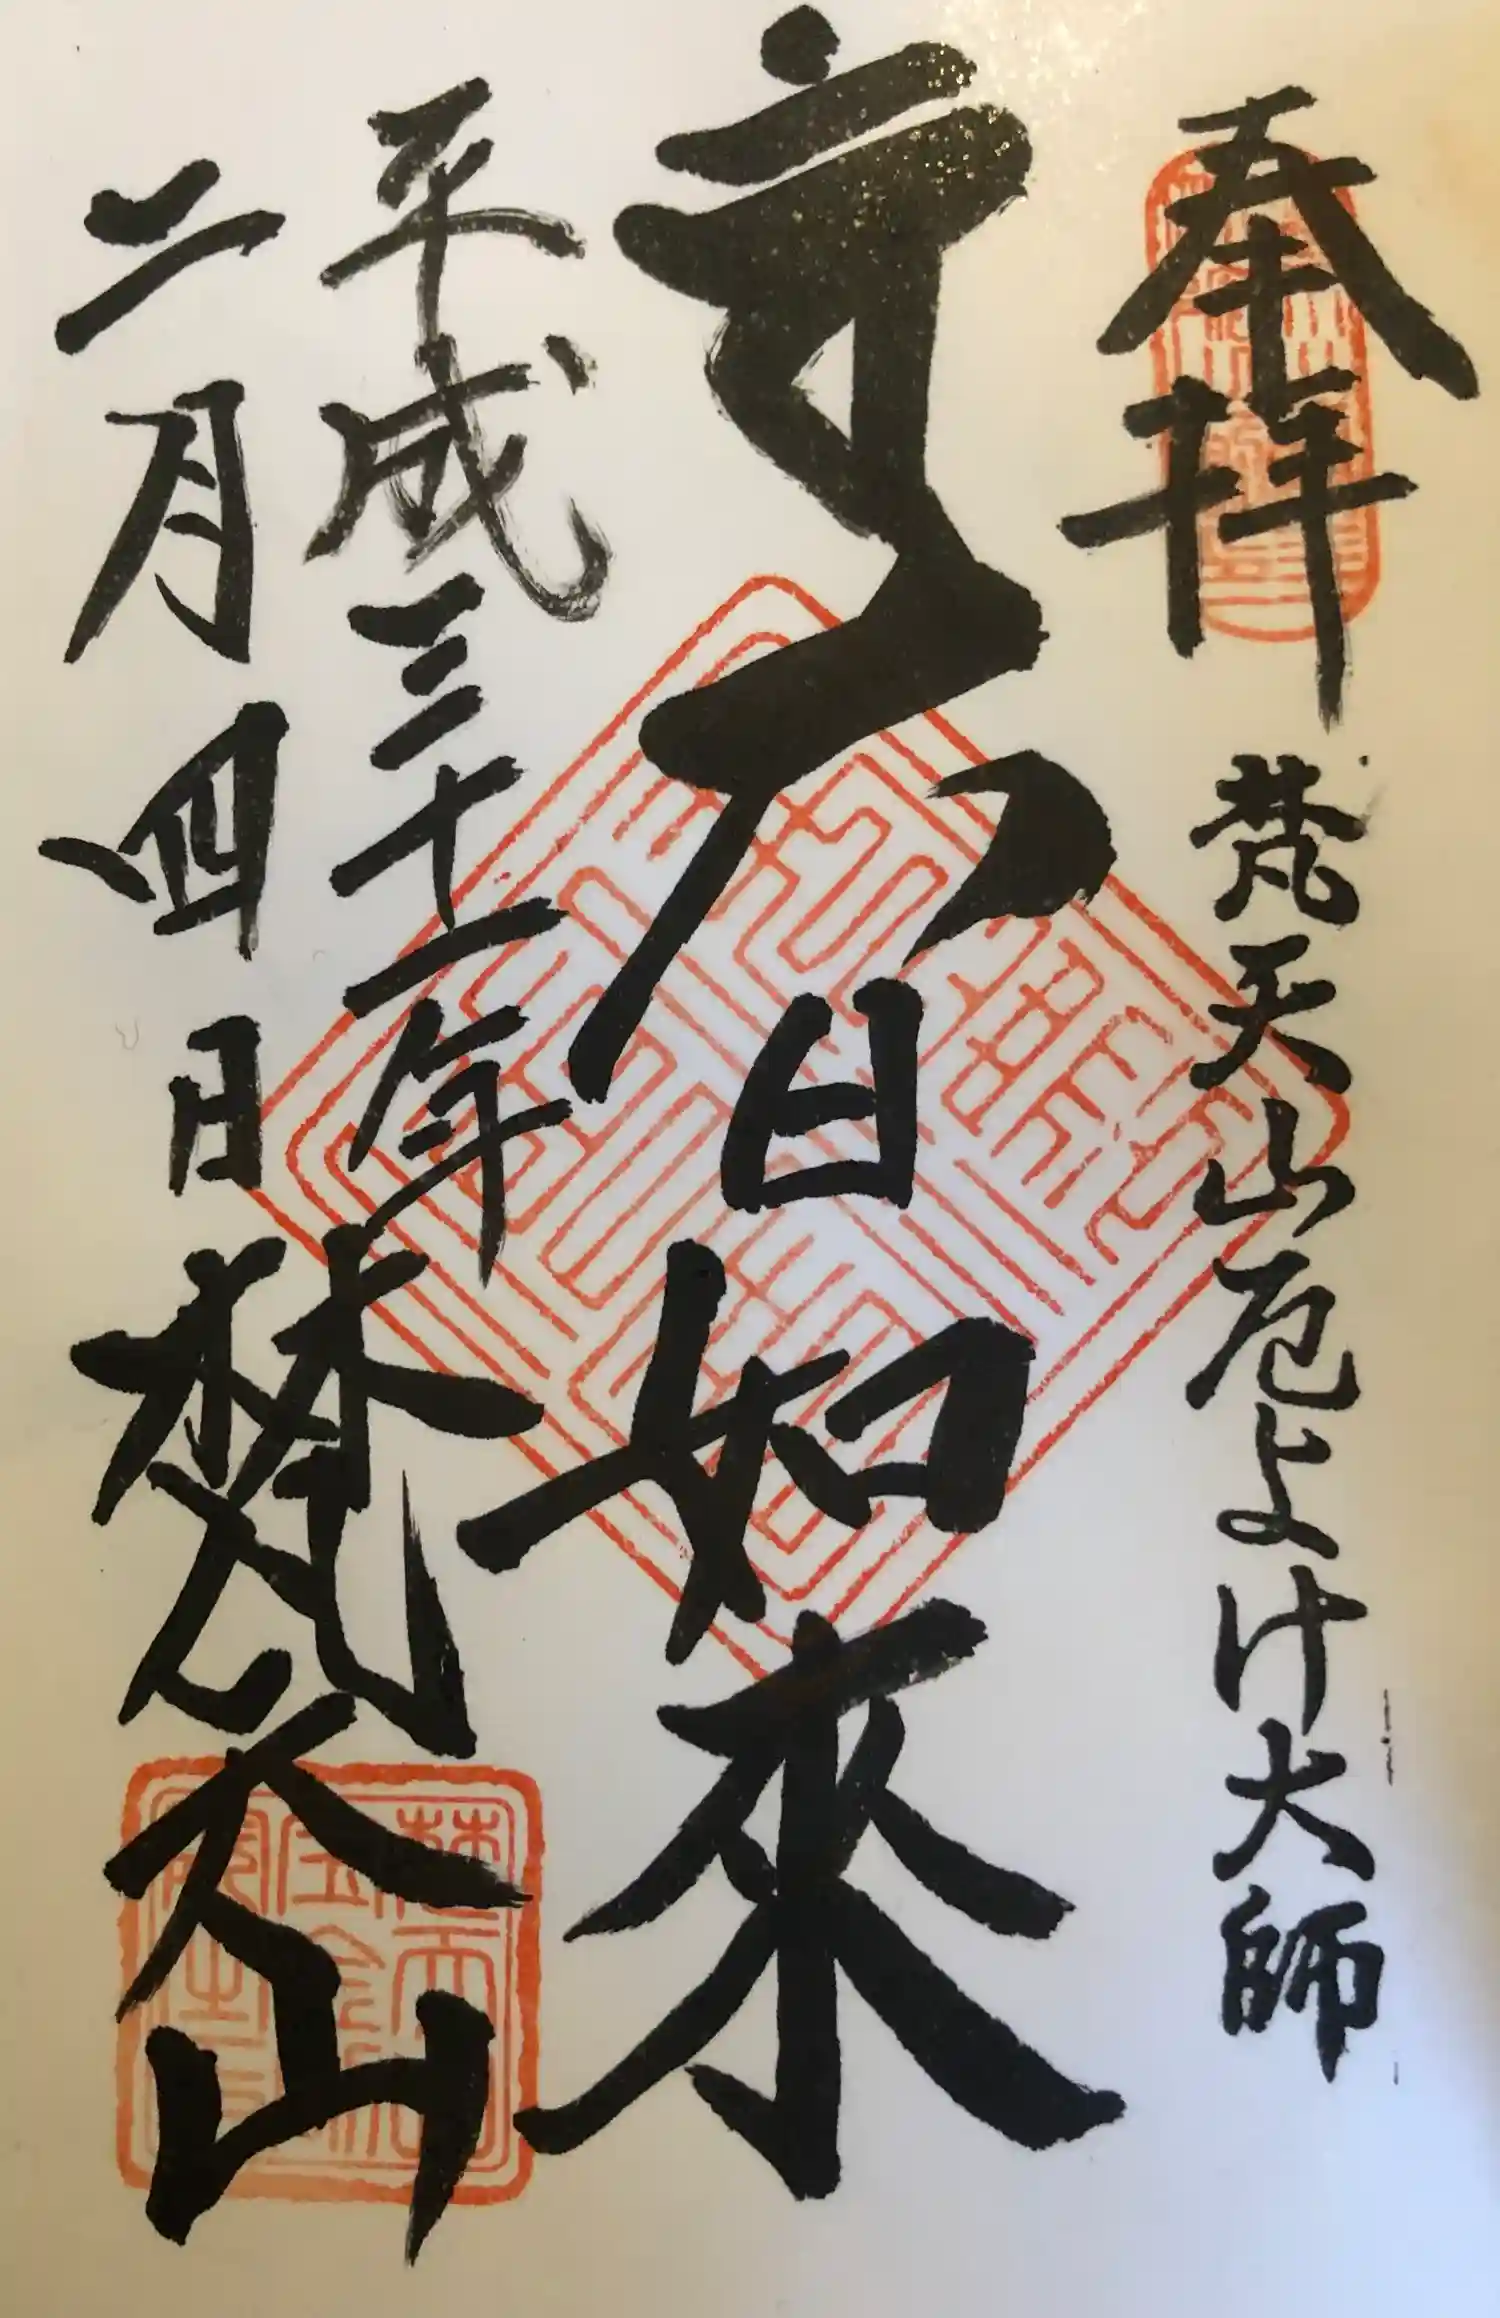 奉拝 梵天山厄よけ大師
大日如來
平成三十一年
二月四日 梵天山